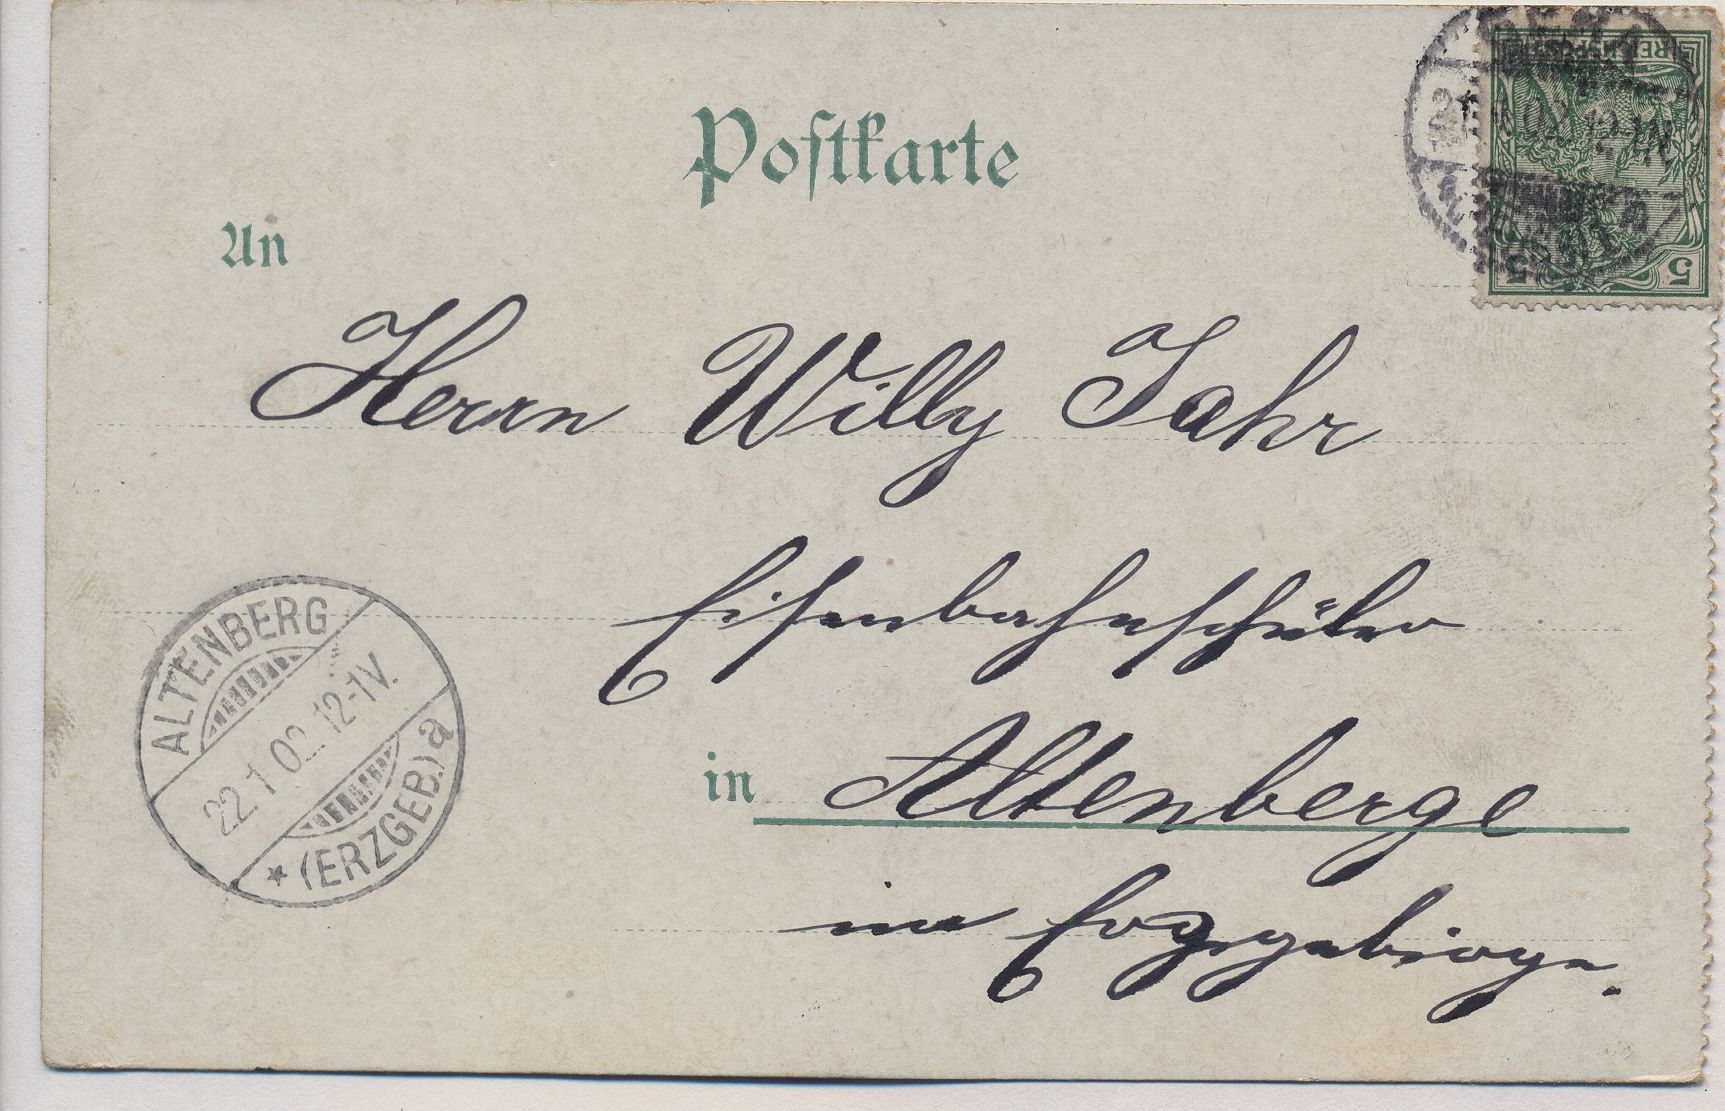 Postkarte
An
Herrn Willy Jahr
Eisenbahnschüler
in Altenberge
im Erzgebirge.
ALTENBERG
22.1.02.12-1V.
* (ERZGEB.) a
REICHSPOST
5 5